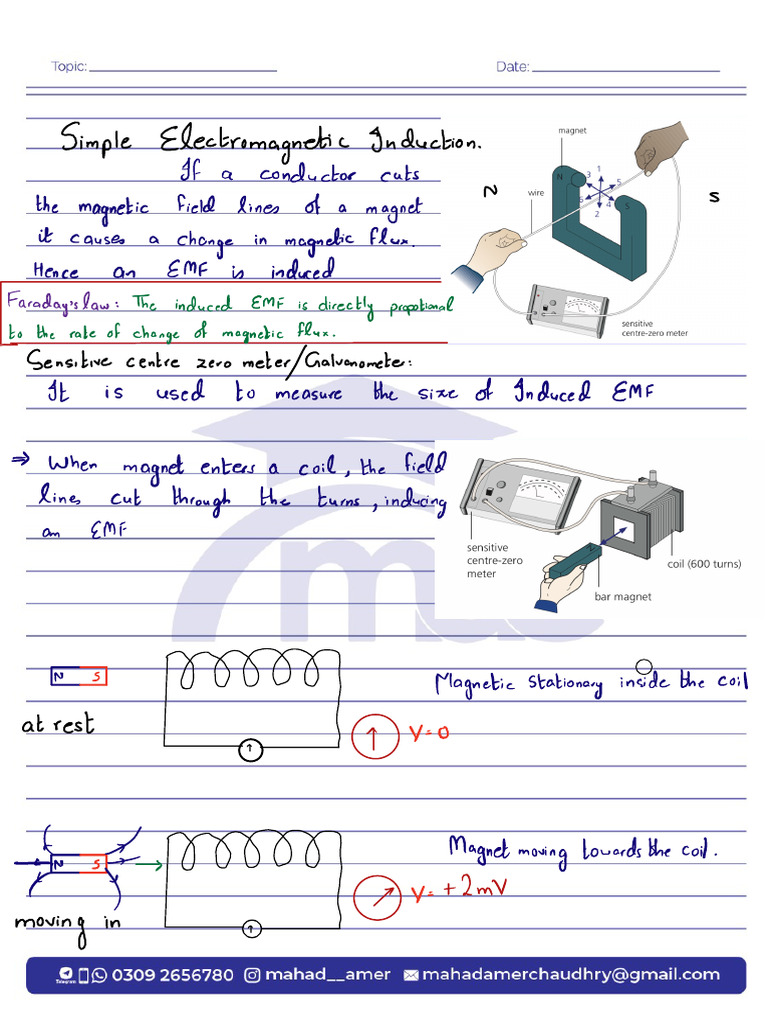 Topic:
Date:
Simple Electromagnetic Induction.
If a conductor cuts
the magnetic field lines of a magnet
it causes a change in magnetic flux.
Hence an EMF is induced
magnet
N
wire
N
S
1
2
3
4
5
6
S
sensitive
centre-zero meter
Faraday's law: The induced EMF is directly propotional
to the rate of change of magnetic flux.
Sensitive centre zero meter/Galvanometer:
It is used to measure the size of Induced EMF
⇒ When magnet enters a coil, the field
lines cut through the turns, inducing
an EMF
sensitive
centre-zero
meter
N
coil (600 turns)
bar magnet
N S
at rest
V=0
Magnetic Stationary inside the coil
N S
moving in
V= +2mV
Magnet moving towards the coil.
Telegram 0309 2656780 mahad__amer mahadamerchaudhry@gmail.com